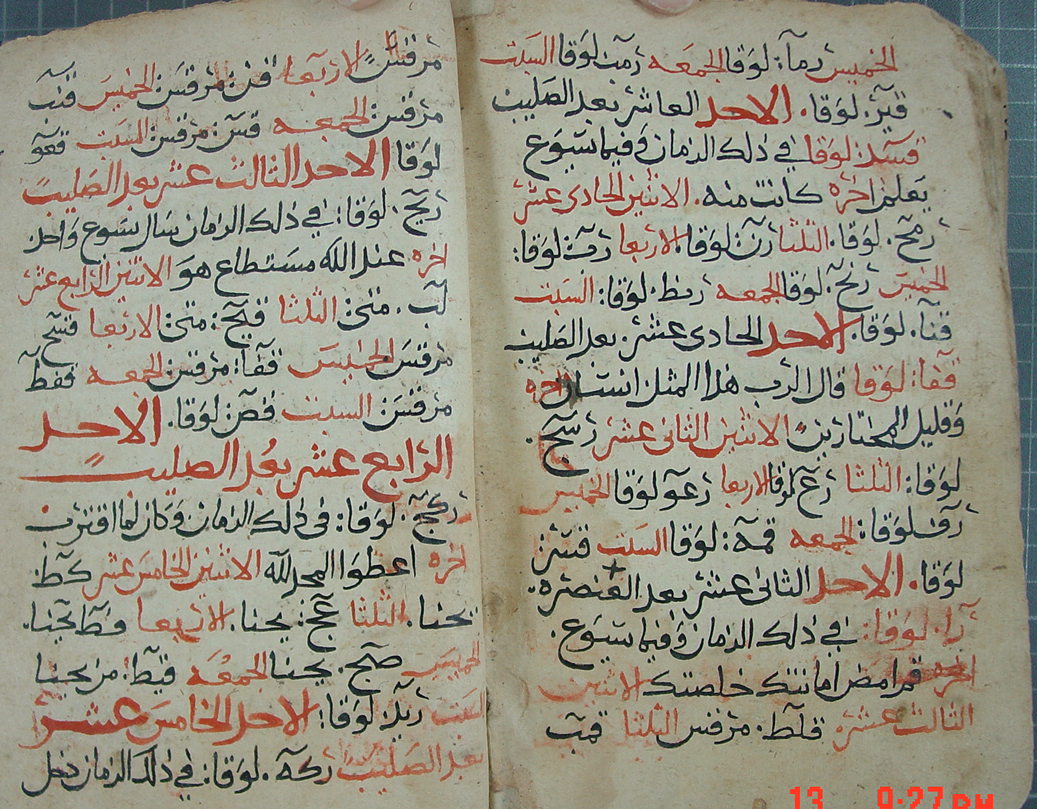 الخميس رما: لوقا الجمعه رمت لوقا السبت
قير: لوقا. الاحد العاشر بعد الصليب
قسد: لوقا في ذلك الزمان وفيما يسوع
يعلم اخره كانت منه. الاثنين الحادي عشر
رمح. لوقا. الثلثا رن: لوقا. الاربعا رفت لوقا:
الخميس رنح. لوقا الجمعه رنط. لوقا: السبت
قنا. لوقا: الاحد الحادي عشر. بعد الصليب
قفا: لوقا قال الرب هذا المثل انسان اخره
وقليل المختارين الاثنين الثاني عشر رسح.
لوقا: الثلثا رع لوقا الاربعا رعو لوقا الخميس
رف لوقا: الجمعه قمه: لوقا السبت
لوقا. الاحد الثاني عشر بعد العنصره.
را. لوقا: في ذلك الزمان وفيما يسوع.
اخره قم امض امانتك خلصتك الاثنين
الثالث عشر قلط. مرقس الثلثا قمب
مرقس الاربعا قن: مرقس: الخميس قنب
مرقس: الجمعه قس: مرقس: السبت قعو
لوقا الاحد الثالث عشر بعد الصليب
ريج. لوقا: في ذلك الزمان سال يسوع واحد
اخره عند الله مستطاع هو الاثنين الرابع عشر
لب. متى: الثلثا قيح: متى: الاربعا قسح
مرقس الخميس قفا: مرقس: الجمعه قفط
مرقس: السبت قص: لوقا. الاحد
الرابع عشر بعد الصليب
ركح. لوقا: في ذلك الزمان وكان لما اقترب
اخره اعطوا المجد لله الاثنين الخامس عشر كط
يحنا. الثلثا عح: يحنا. الاربعا قطط يحنا.
الخميس صح. يحنا الجمعه قيط: من يحنا
السبت ريد: لوقا: الاحد الخامس عشر
بعد الصليب ركه. لوقا: في ذلك الزمان دخل
13 9:27 PM